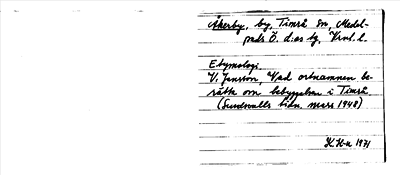 Åkerby, by, Timrå sn, Medel-
pads Ö. d:as tg, Vrnl. l.
Etymologi.
V. Jansson, Vad ortnamnen be-
rätta om bebyggelsen i Timrå.
(Sundsvalls tidn. mars 1948)
1971